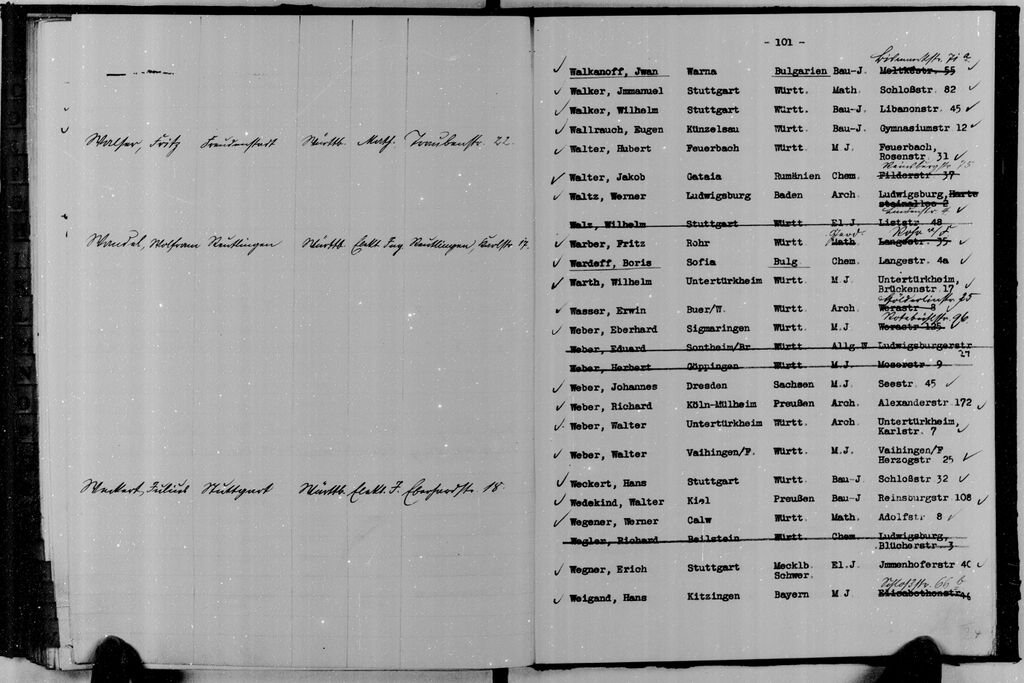 Walser, Fritz Freudenstadt Württb. Math. Traubenstr. 22.
Wandel, Wolfram Reutlingen Württb. Elekt. Ing. Reutlingen, Karlstr. 17.
Weckert, Julius Stuttgart Württb. Elekt. J. Eberhardstr. 18.
- 101 -
Bismarckstr. 71 a
Walkanoff, Jwan Warna Bulgarien Bau-J. Moltkestr. 55
Walker, Jmmanuel Stuttgart Württ. Math. Schloßstr. 82
Walker, Wilhelm Stuttgart Württ. Bau-J. Libanonstr. 45
Wallrauch, Eugen Künzelsau Württ. Bau-J. Gymnasiumstr 12
Walter, Hubert Feuerbach Württ. M.J. Feuerbach,
Rosenstr. 31
Reinsburgstr. 75
Walter, Jakob Gataia Rumänien Chem. Filderstr 37
Waltz, Werner Ludwigsburg Baden Arch. Ludwigsburg, Harte
steinallee 2
Lindenstr. 4
Walz, Wilhelm Stuttgart Württ El.J. Liststr 48
Rohr a/F
Warber, Fritz Rohr Württ Math Langestr 35
Wardeff, Boris Sofia Bulg. Chem. Langestr. 4a
Warth, Wilhelm Untertürkheim Württ. M.J. Untertürkheim,
Brückenstr. 17
Hölderlinstr. 25
Wasser, Erwin Buer/W. Württ. Arch. Werastr 8
Rotebühlstr. 96
Weber, Eberhard Sigmaringen Württ. M.J Werastr 125
Weber, Eduard Sontheim/Br. Württ. Allg.W Ludwigsburgerstr
27
Weber, Herbert Göppingen Württ. M.J. Moserstr. 9
Weber, Johannes Dresden Sachsen M.J. Seestr. 45
Weber, Richard Köln-Mülheim Preußen Arch. Alexanderstr 172
Weber, Walter Untertürkheim Württ. Arch. Untertürkheim,
Karlstr. 7
Weber, Walter Vaihingen/F. Württ. M.J. Vaihingen/F
Herzogstr 25
Weckert, Hans Stuttgart Württ. Bau-J Schloßstr 32
Wedekind, Walter Kiel Preußen Bau-J Reinsburgstr 108
Wegener, Werner Calw Württ. Math. Adolfstr 8
Wegler, Richard Beilstein Württ. Chem. Ludwigsburg,
Blücherstr. 3
Wegner, Erich Stuttgart Mecklb. El.J. Jmmenhoferstr 40
Schwer.
Schloßstr. 66 b
Weigand, Hans Kitzingen Bayern M J Elisabethenstr 46